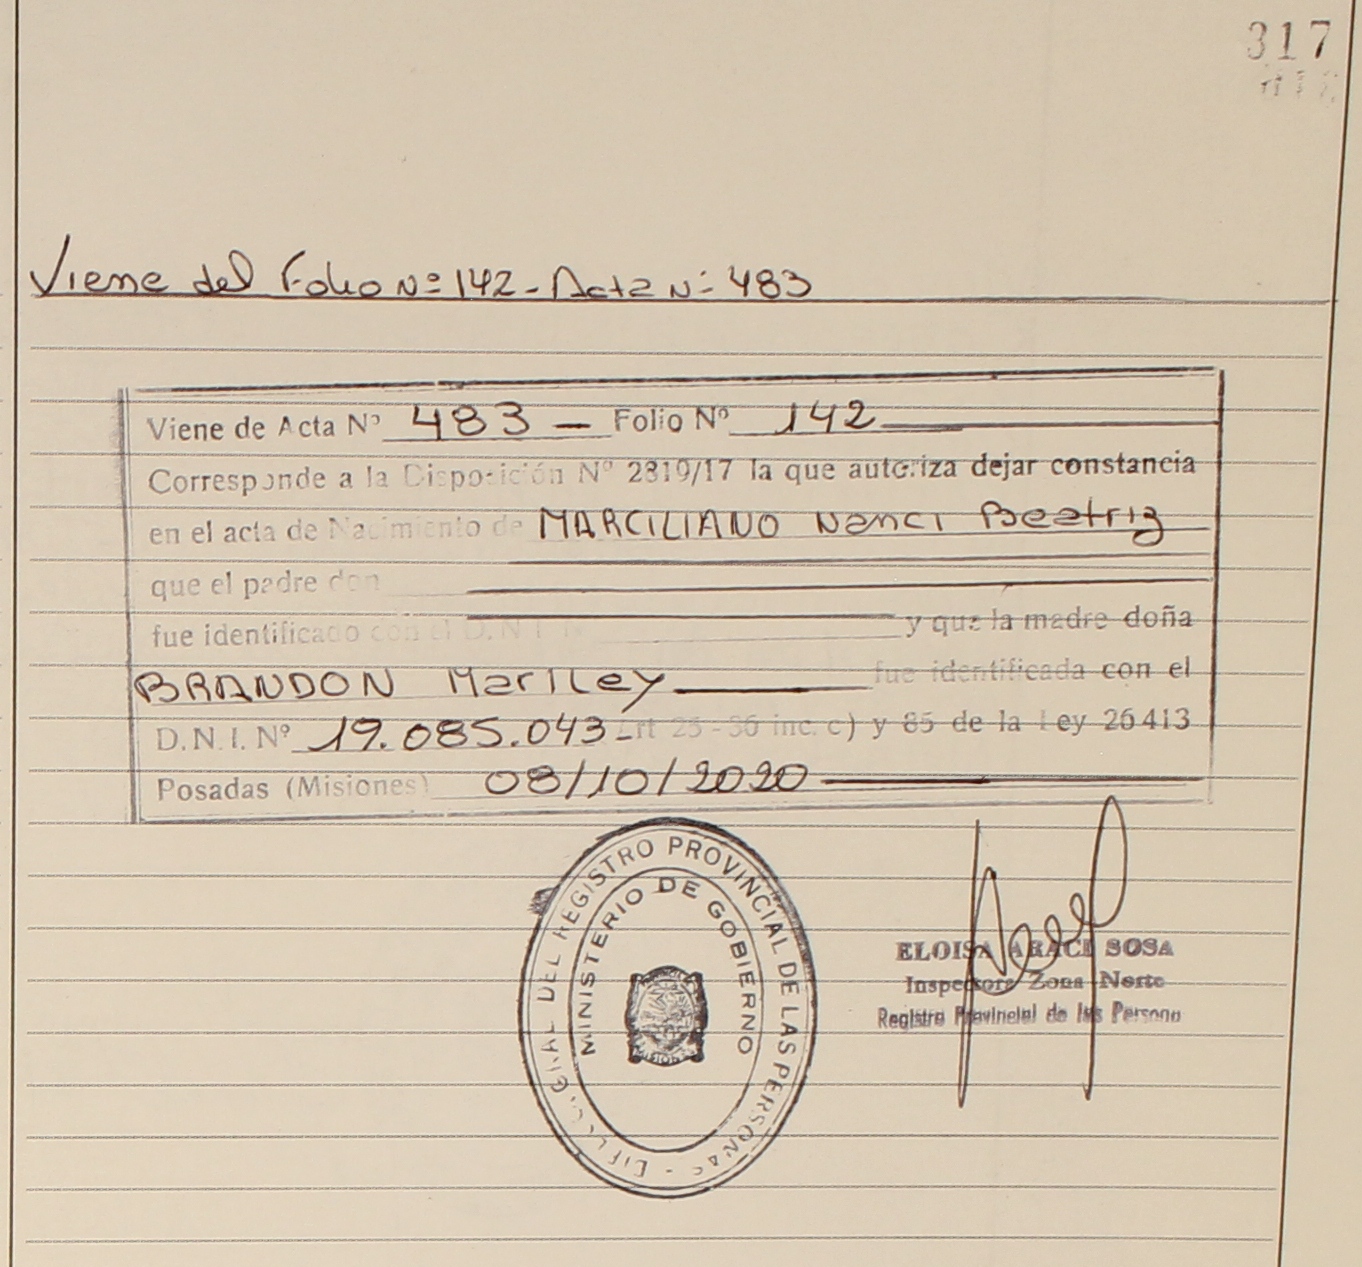 317
Viene del Folio Nº 142 - Acta Nº 483
Viene de Acta Nº 483 — Folio Nº 142
Corresponde a la Disposición Nº 2819/17 la que autoriza dejar constancia
en el acta de Nacimiento de MARCILIANO Nanci Beatriz
que el padre don
fue identificado con el D.N.I. Nº
y que la madre doña
BRANDON Marlley fue identificada con el
D.N.I. Nº 19.085.043- Art 25 - 36 inc. c) y 85 de la Ley 26413
Posadas (Misiones) 08/10/2020
REGISTRO PROVINCIAL DE LAS PERSONAS
MINISTERIO DE GOBIERNO
ELOISA ARACI SOSA
Inspectora Zona Norte
Registro Provincial de las Persona